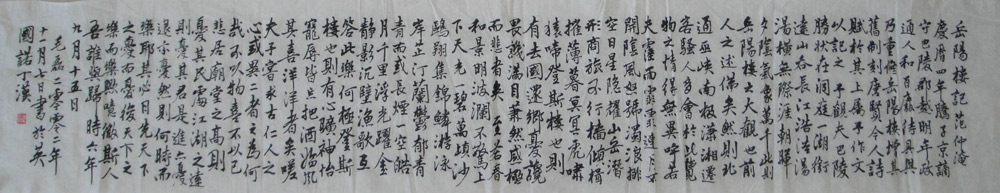 岳陽樓記 范仲淹
慶曆四年春滕子京謫
守巴陵郡越明年政
通人和百廢待具興
乃重修岳陽樓增其
舊制刻唐賢今人詩
賦於其上屬予作文
以記之予觀夫巴陵
勝狀在洞庭一湖銜
遠山吞長江浩浩湯
湯橫無際涯朝暉
夕陰氣象萬千此則
岳陽樓之大觀也前
人之述備矣然則北
通巫峽南極瀟湘遷
客騷人多會於此覽
物之情得無異乎若
夫霪雨霏霏連月不
開陰風怒號濁浪排
空日星隱曜山岳潛
形商旅不行檣傾楫
摧薄暮冥冥虎嘯
猿啼登斯樓也則
有去國還鄉憂讒
畏譏滿目蕭然感極
而悲者矣至若春
和景明波瀾不驚上
下天光一碧萬頃沙
鷗翔集錦鱗游泳
岸芷汀蘭鬱郁青
青而或長煙一空皓
月千里浮光躍金
靜影沉璧漁歌互
答此樂何極登斯
樓也則有心曠神怡
寵辱皆忘把酒臨風
其喜洋洋者矣嗟
夫予嘗求古仁人之
心或異二者之為何
哉不以物喜不以己
悲居廟堂之高則
憂其民處江湖之遠
則憂其君是進亦憂
退亦憂然則何時而
樂耶其必曰先天下
之憂而憂後天下之
樂而樂歟噫微斯人
吾誰與歸時六年
九月十五日
毛磊二零零二年
十一月七日書於英
國諾丁漢